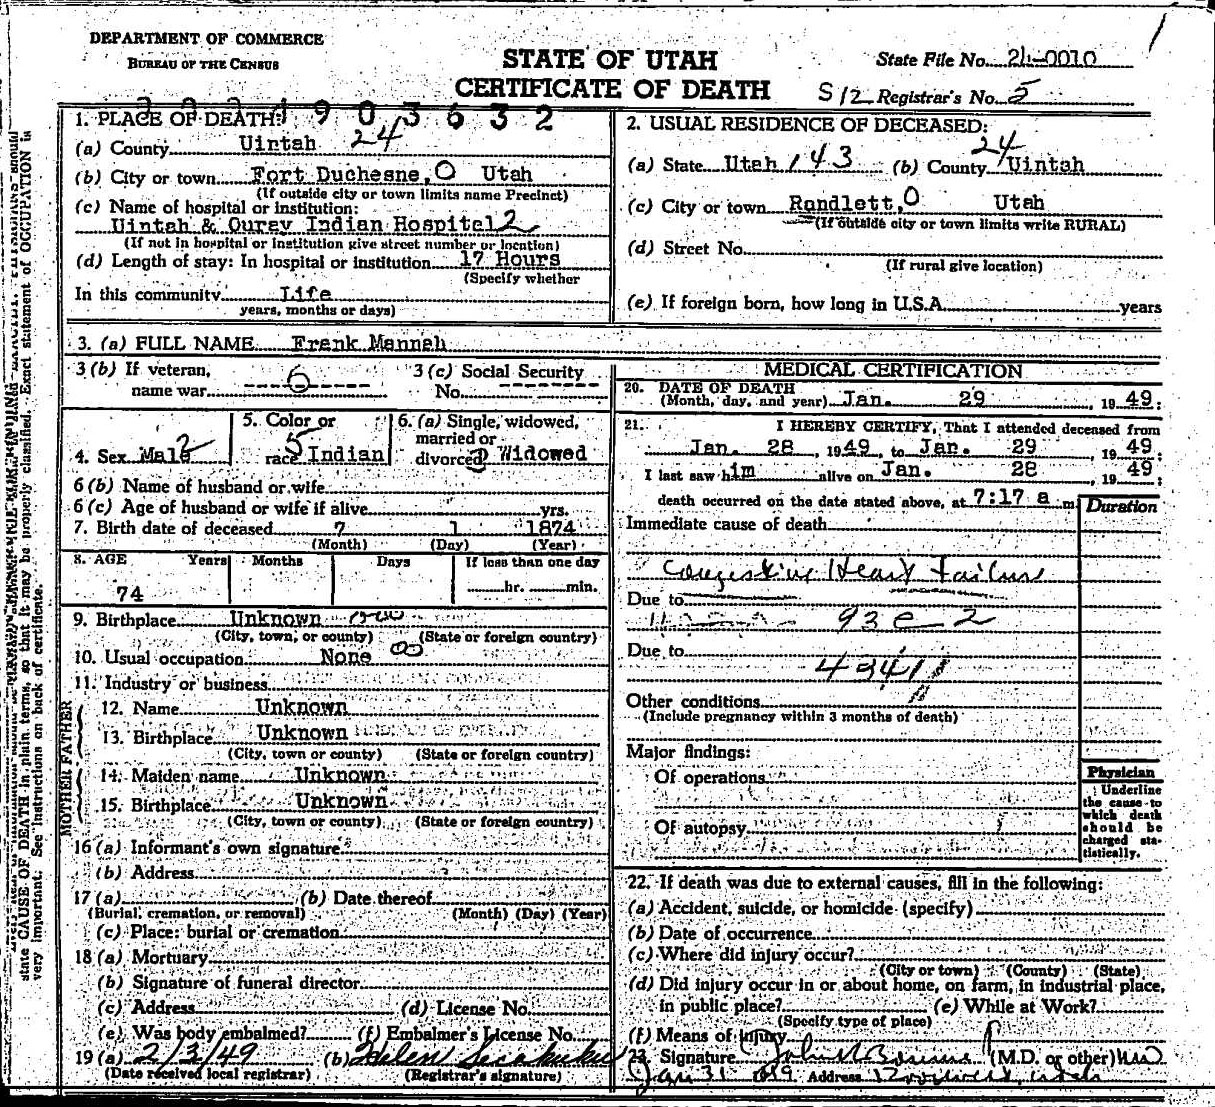 DEPARTMENT OF COMMERCE
BUREAU OF THE CENSUS
STATE OF UTAH
CERTIFICATE OF DEATH
State File No. 24-0010
S12 Registrar's No. 5
1903632
1. PLACE OF DEATH:
(a) County Uintah 24
(b) City or town Fort Duchesne, O Utah
(If outside city or town limits name Precinct)
(c) Name of hospital or institution:
Uintah & Ouray Indian Hospital 2
(If not in hospital or institution give street number or location)
(d) Length of stay: In hospital or institution 17 Hours
(Specify whether
In this community Life
years, months or days)
2. USUAL RESIDENCE OF DECEASED:
24
(a) State Utah 143 (b) County Uintah
(c) City or town Randlett, O Utah
(If outside city or town limits write RURAL)
(d) Street No.
(If rural give location)
(e) If foreign born, how long in U.S.A. years
3. (a) FULL NAME Frank Mannah
3 (b) If veteran,
name war 0
3 (c) Social Security
No. --------
4. Sex Male 2
5. Color or
race 5 Indian
6. (a) Single, widowed,
married or
divorced Widowed
6 (b) Name of husband or wife
6 (c) Age of husband or wife if alive yrs.
7. Birth date of deceased 7 1 1874
(Month) (Day) (Year)
8. AGE Years Months Days If less than one day
74 hr. min.
9. Birthplace Unknown
(City, town, or county) (State or foreign country)
10. Usual occupation None 00
11. Industry or business
FATHER
12. Name Unknown
13. Birthplace Unknown
(City, town or county) (State or foreign country)
MOTHER
14. Maiden name Unknown
15. Birthplace Unknown
(City, town or county) (State or foreign country)
16 (a) Informant's own signature
(b) Address
17 (a) (b) Date thereof
(Burial, cremation, or removal) (Month) (Day) (Year)
(c) Place: burial or cremation
18 (a) Mortuary
(b) Signature of funeral director
(c) Address (d) License No.
(e) Was body embalmed? (f) Embalmer's License No.
19 (a) 2/3/49 (b) Helen Secakuku
(Date received local registrar) (Registrar's signature)
MEDICAL CERTIFICATION
20. DATE OF DEATH
(Month, day, and year) Jan. 29, 1949:
21. I HEREBY CERTIFY, That I attended deceased from
Jan. 28, 1949, to Jan. 29, 1949:
I last saw him alive on Jan. 28, 1949:
death occurred on the date stated above, at 7:17 a m.
Duration
Immediate cause of death
Congestive Heart Failure
Due to
93e-2
Due to
4341
Other conditions
(Include pregnancy within 3 months of death)
Major findings:
Of operations
Of autopsy
Physician
Underline
the cause to
which death
should be
charged sta-
tistically.
22. If death was due to external causes, fill in the following:
(a) Accident, suicide, or homicide (specify)
(b) Date of occurrence
(c) Where did injury occur?
(City or town) (County) (State)
(d) Did injury occur in or about home, on farm, in industrial place,
in public place? (e) While at Work?
(Specify type of place)
(f) Means of injury
23. Signature John (M.D. or other) MD
Jan 31 1949 Address Roosevelt, Utah
state CAUSE OF DEATH in plain terms, so that it may be properly classified. Exact statement of OCCUPATION is
very important. See instructions on back of certificate.